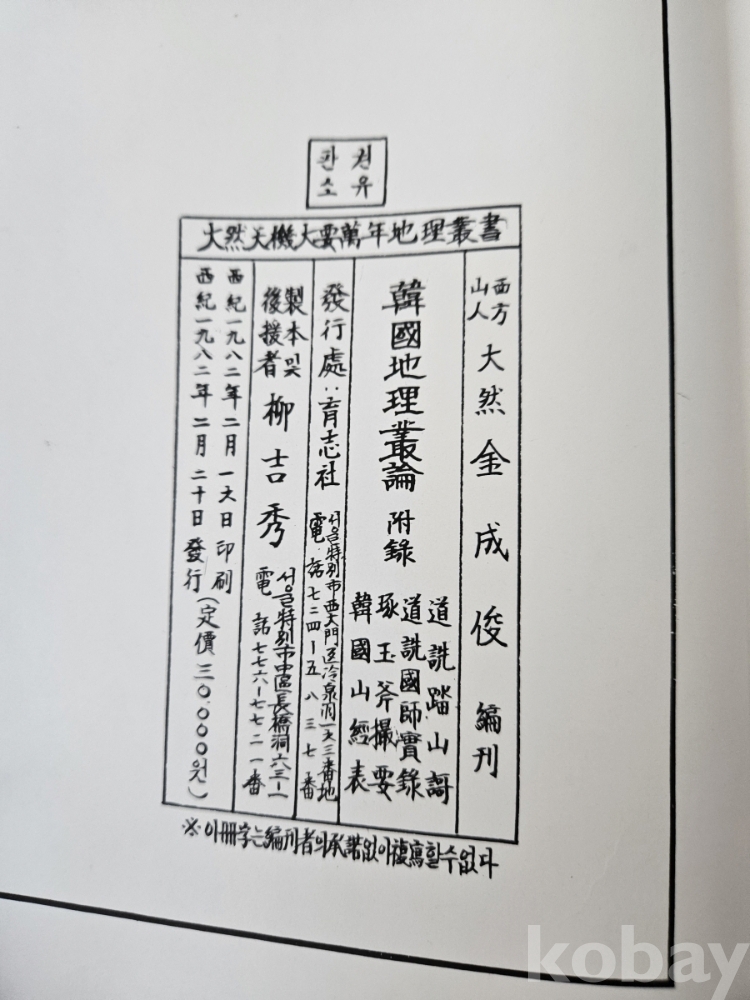 판권
소유
大然天機大要萬年地理叢書
西方
山人
大然 金成俊 編刊
韓國地理叢論 附錄
道詵踏山謌
道詵國師實錄
琢玉斧撮要
韓國山經表
發行處:育志社
서울特別市西大門區冷泉洞一六三番地
電話七二四-五八三七番
製本및
後援者
柳吉秀
서울特別市中區長橋洞六三-一
電話七七六-七七二一番
西紀一九八二年二月一六日印刷
西紀一九八二年二月二十日發行(定價三0,000원)
※이冊字는編刊者의承諾없이複寫할수없다
kobay